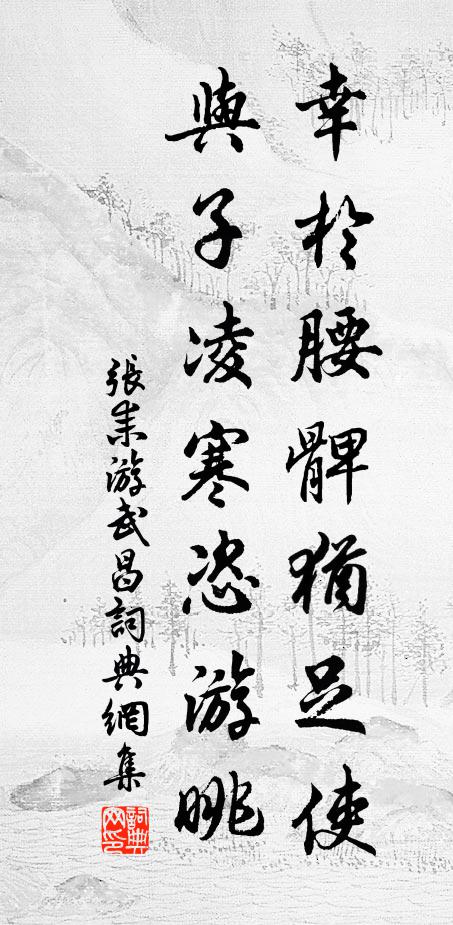 幸於腰髀猶足使
與子凌寒恣游眺
張耒游武昌詞典網集
詞典網印